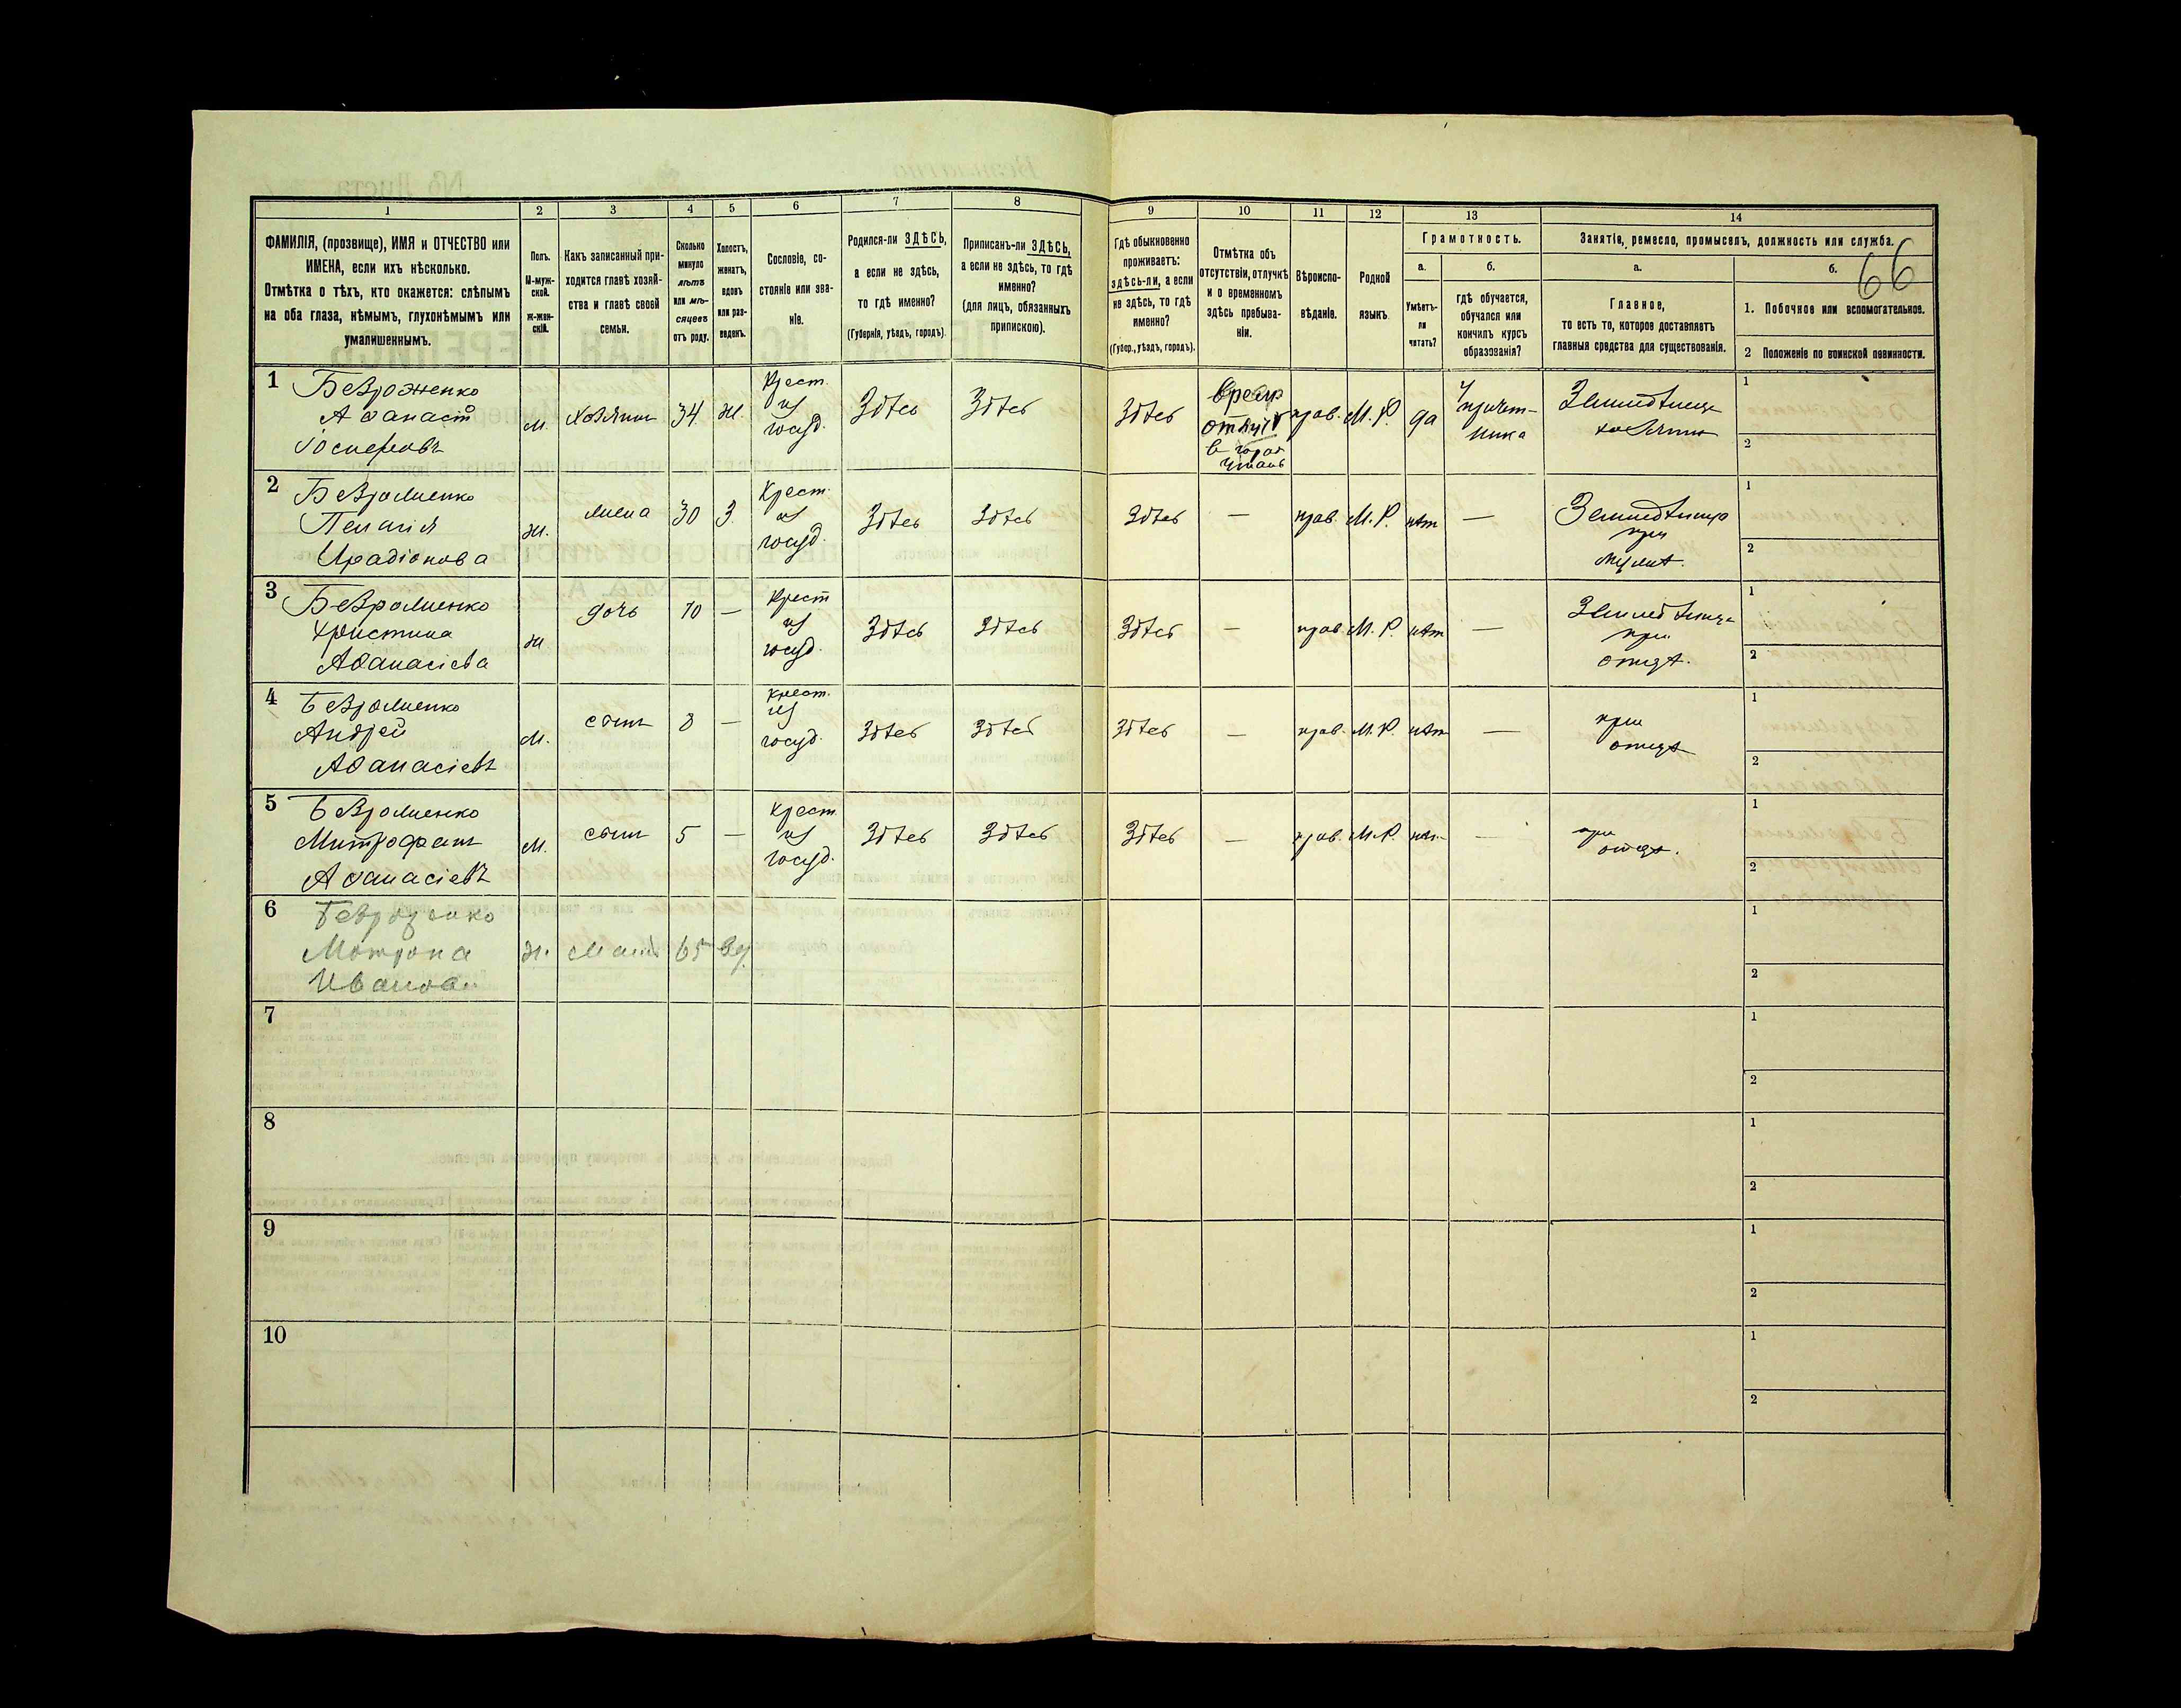 66
1 2 3 4 5 6 7 8 9 10 11 12 13 14
ФАМИЛІЯ, (прозвище), ИМЯ и ОТЧЕСТВО или
ИМЕНА, если ихъ нѣсколько.
Отмѣтка о тѣхъ, кто окажется: слѣпымъ
на оба глаза, нѣмымъ, глухонѣмымъ или
умалишеннымъ.
Полъ.
М-муж-
ской.
Ж-жен-
скій.
Какъ записанный при-
ходится главѣ хозяй-
ства и главѣ своей
семьи.
Сколько
минуло
лѣтъ
или мѣ-
сяцевъ
отъ роду.
Холостъ,
женатъ,
вдовъ
или раз-
веденъ.
Сословіе, со-
стояніе или зва-
ніе.
Родился-ли ЗДѢСЬ,
а если не здѣсь,
то гдѣ именно?
(Губернія, уѣздъ, городъ).
Приписанъ-ли ЗДѢСЬ,
а если не здѣсь, то гдѣ
именно?
(для лицъ, обязанныхъ
припискою).
Гдѣ обыкновенно
проживаетъ:
здѣсь-ли, а если
не здѣсь, то гдѣ
именно?
(Губер., уѣздъ, городъ).
Отмѣтка объ
отсутствіи, отлучкѣ
и о временномъ
здѣсь пребыва-
ніи.
Вѣроиспо-
вѣданіе.
Родной
языкъ
Грамотность.
а.
Умѣетъ-
ли
читать?
б.
гдѣ обучается,
обучался или
кончилъ курсъ
образованія?
Занятіе, ремесло, промыселъ, должность или служба.
а.
Главное,
то есть то, которое доставляетъ
главныя средства для существованія.
б.
1. Побочное или вспомогательное.
2 Положеніе по воинской повинности.
1
Афанасій
м.
хозяинъ
34
ж.
Крест.
из
госуд.
Здѣсь
Здѣсь
Здѣсь
в город
прав.
М. Р.
да
Земледѣлецъ
хозяинъ
1
2
2
Пелагія
Ирадіонова
ж.
жена
30
З.
Крест.
из
госуд.
Здѣсь
Здѣсь
Здѣсь
—
прав.
М. Р.
нѣт
—
Земледѣлица
при
мужѣ.
1
2
3
Христина
Афанасіева
ж
дочь
10
—
Крест
из
госуд.
Здѣсь
Здѣсь
Здѣсь
—
прав.
М. Р.
нѣт
—
при
отцѣ.
1
2
4
Андрей
Афанасіевъ
м.
сынъ
8
—
Крест.
из
госуд.
Здѣсь
Здѣсь
Здѣсь
—
прав.
М. Р.
нѣт
—
при
отцѣ
1
2
5
Митрофанъ
Афанасіевъ
м.
сынъ
5
—
Крест
из
госуд.
Здѣсь
Здѣсь
Здѣсь
—
прав.
М. Р.
нѣт
—
при
отцѣ.
1
2
6
Мотрона
Иванова
ж.
мать
65
вд.
1
2
7
1
2
8
1
2
9
1
2
10
1
2